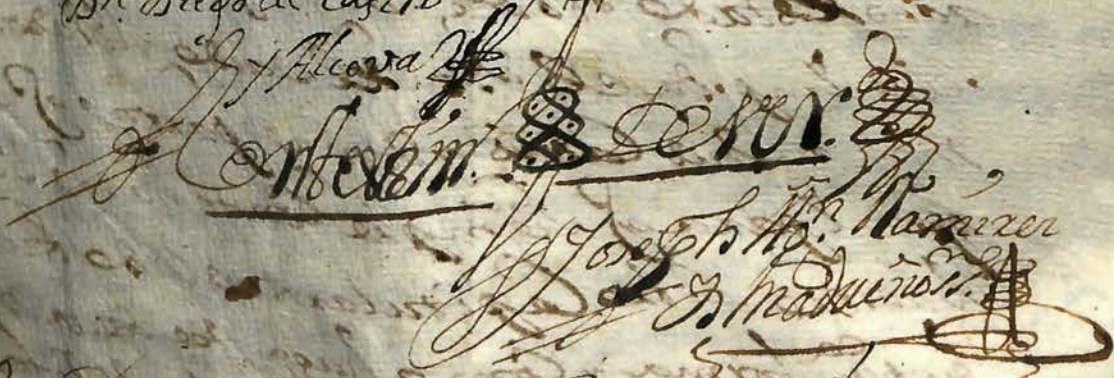 Dn. Diego de Castro
y Alcova
En testim. De ver.
Joseph Mn. Ramirez
y Madueño